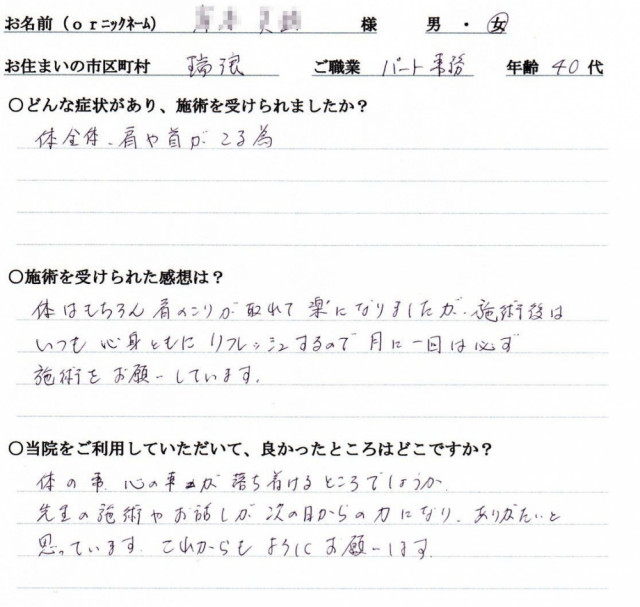 お名前（orニックネーム） 様 男 ・ 女
お住まいの市区町村 瑞浪 ご職業 パート事務 年齢 40 代
〇どんな症状があり、施術を受けられましたか？
体全体、肩や首がこる為
〇施術を受けられた感想は？
体はもちろん肩のこりが取れて楽になりましたが、施術後は
いつも心身ともにリフレッシュするので月に一回は必ず
施術をお願いしています。
〇当院をご利用していただいて、良かったところはどこですか？
体の事、心の事が落ち着けるところでしょうか
先生の施術やお話しが次の日からの力になり、ありがたいと
思っています。これからもよろしくお願いします。